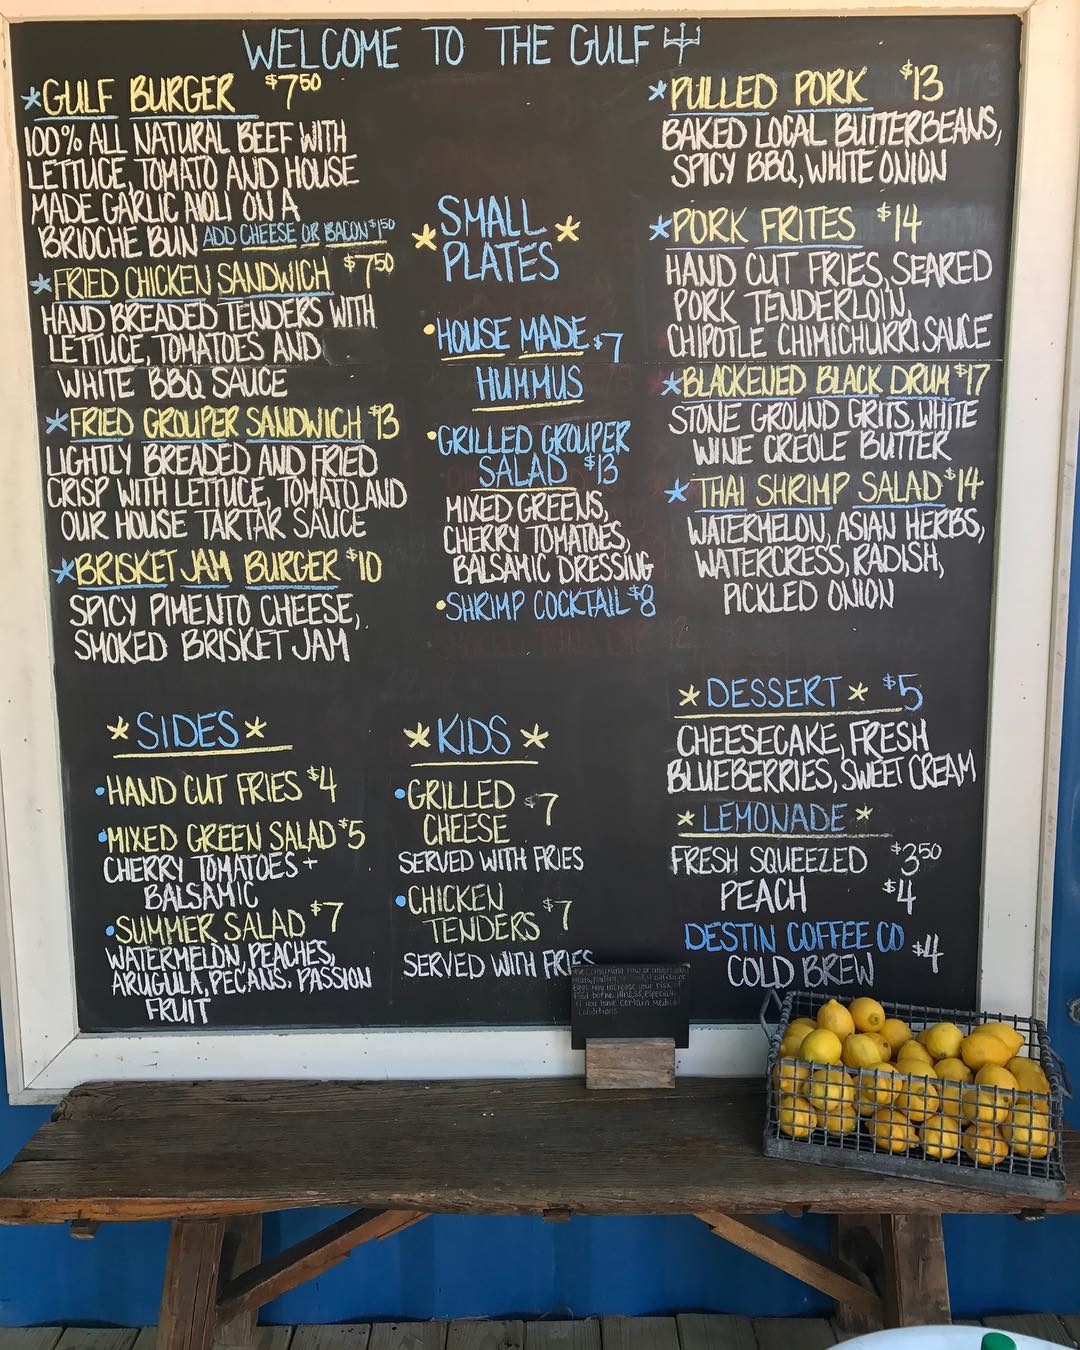 WELCOME TO THE GULF
*GULF BURGER $7.50
100% ALL NATURAL BEEF WITH
LETTUCE, TOMATO AND HOUSE
MADE GARLIC AIOLI ON A
BRIOCHE BUN ADD CHEESE OR BACON $1.50
*FRIED CHICKEN SANDWICH $7.50
HAND BREADED TENDERS WITH
LETTUCE, TOMATOES AND
WHITE BBQ SAUCE
*FRIED GROUPER SANDWICH $13
LIGHTLY BREADED AND FRIED
CRISP WITH LETTUCE, TOMATO AND
OUR HOUSE TARTAR SAUCE
*BRISKET JAM BURGER $10
SPICY PIMENTO CHEESE,
SMOKED BRISKET JAM
*SMALL PLATES*
•HOUSE MADE $7
HUMMUS
•GRILLED GROUPER
SALAD $13
MIXED GREENS,
CHERRY TOMATOES,
BALSAMIC DRESSING
•SHRIMP COCKTAIL $8
*PULLED PORK $13
BAKED LOCAL BUTTERBEANS,
SPICY BBQ, WHITE ONION
*PORK FRITES $14
HAND CUT FRIES, SEARED
PORK TENDERLOIN,
CHIPOTLE CHIMICHURRI SAUCE
*BLACKENED BLACK DRUM $17
STONE GROUND GRITS, WHITE
WINE CREOLE BUTTER
*THAI SHRIMP SALAD $14
WATERMELON, ASIAN HERBS,
WATERCRESS, RADISH,
PICKLED ONION
*SIDES*
•HAND CUT FRIES $4
•MIXED GREEN SALAD $5
CHERRY TOMATOES +
BALSAMIC
•SUMMER SALAD $7
WATERMELON, PEACHES,
ARUGULA, PECANS, PASSION
FRUIT
*KIDS*
•GRILLED $7
CHEESE
SERVED WITH FRIES
•CHICKEN
TENDERS $7
SERVED WITH FRIES
*DESSERT* $5
CHEESECAKE, FRESH
BLUEBERRIES, SWEET CREAM
*LEMONADE*
FRESH SQUEEZED $3.50
PEACH $4
DESTIN COFFEE CO $4
COLD BREW
consuming raw or
may increase your risk of
food borne illness, especially
if you have certain medical
conditions